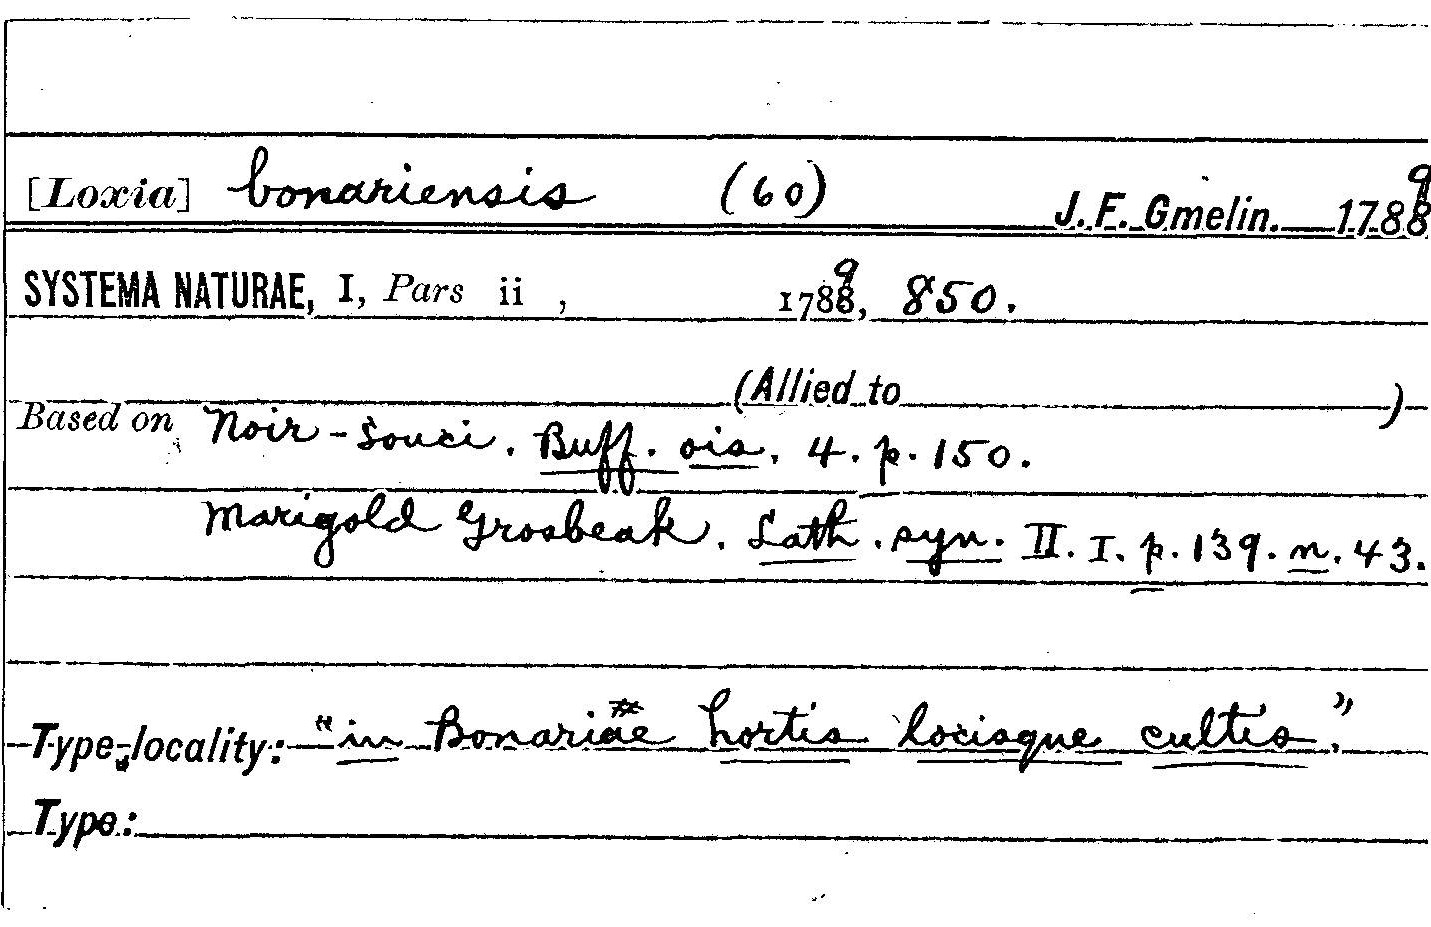 [Loxia] bonariensis (60) J. F. Gmelin. 1789
SYSTEMA NATURAE, I, Pars ii , 1789, 850.
(Allied to )
Based on Noir-Souci. Buff. ois. 4. p. 150.
Marigold Grosbeak. Lath. syn. II. I. p. 139. n. 43.
Type-locality: "in Bonariae hortis locisque cultis."
Type: